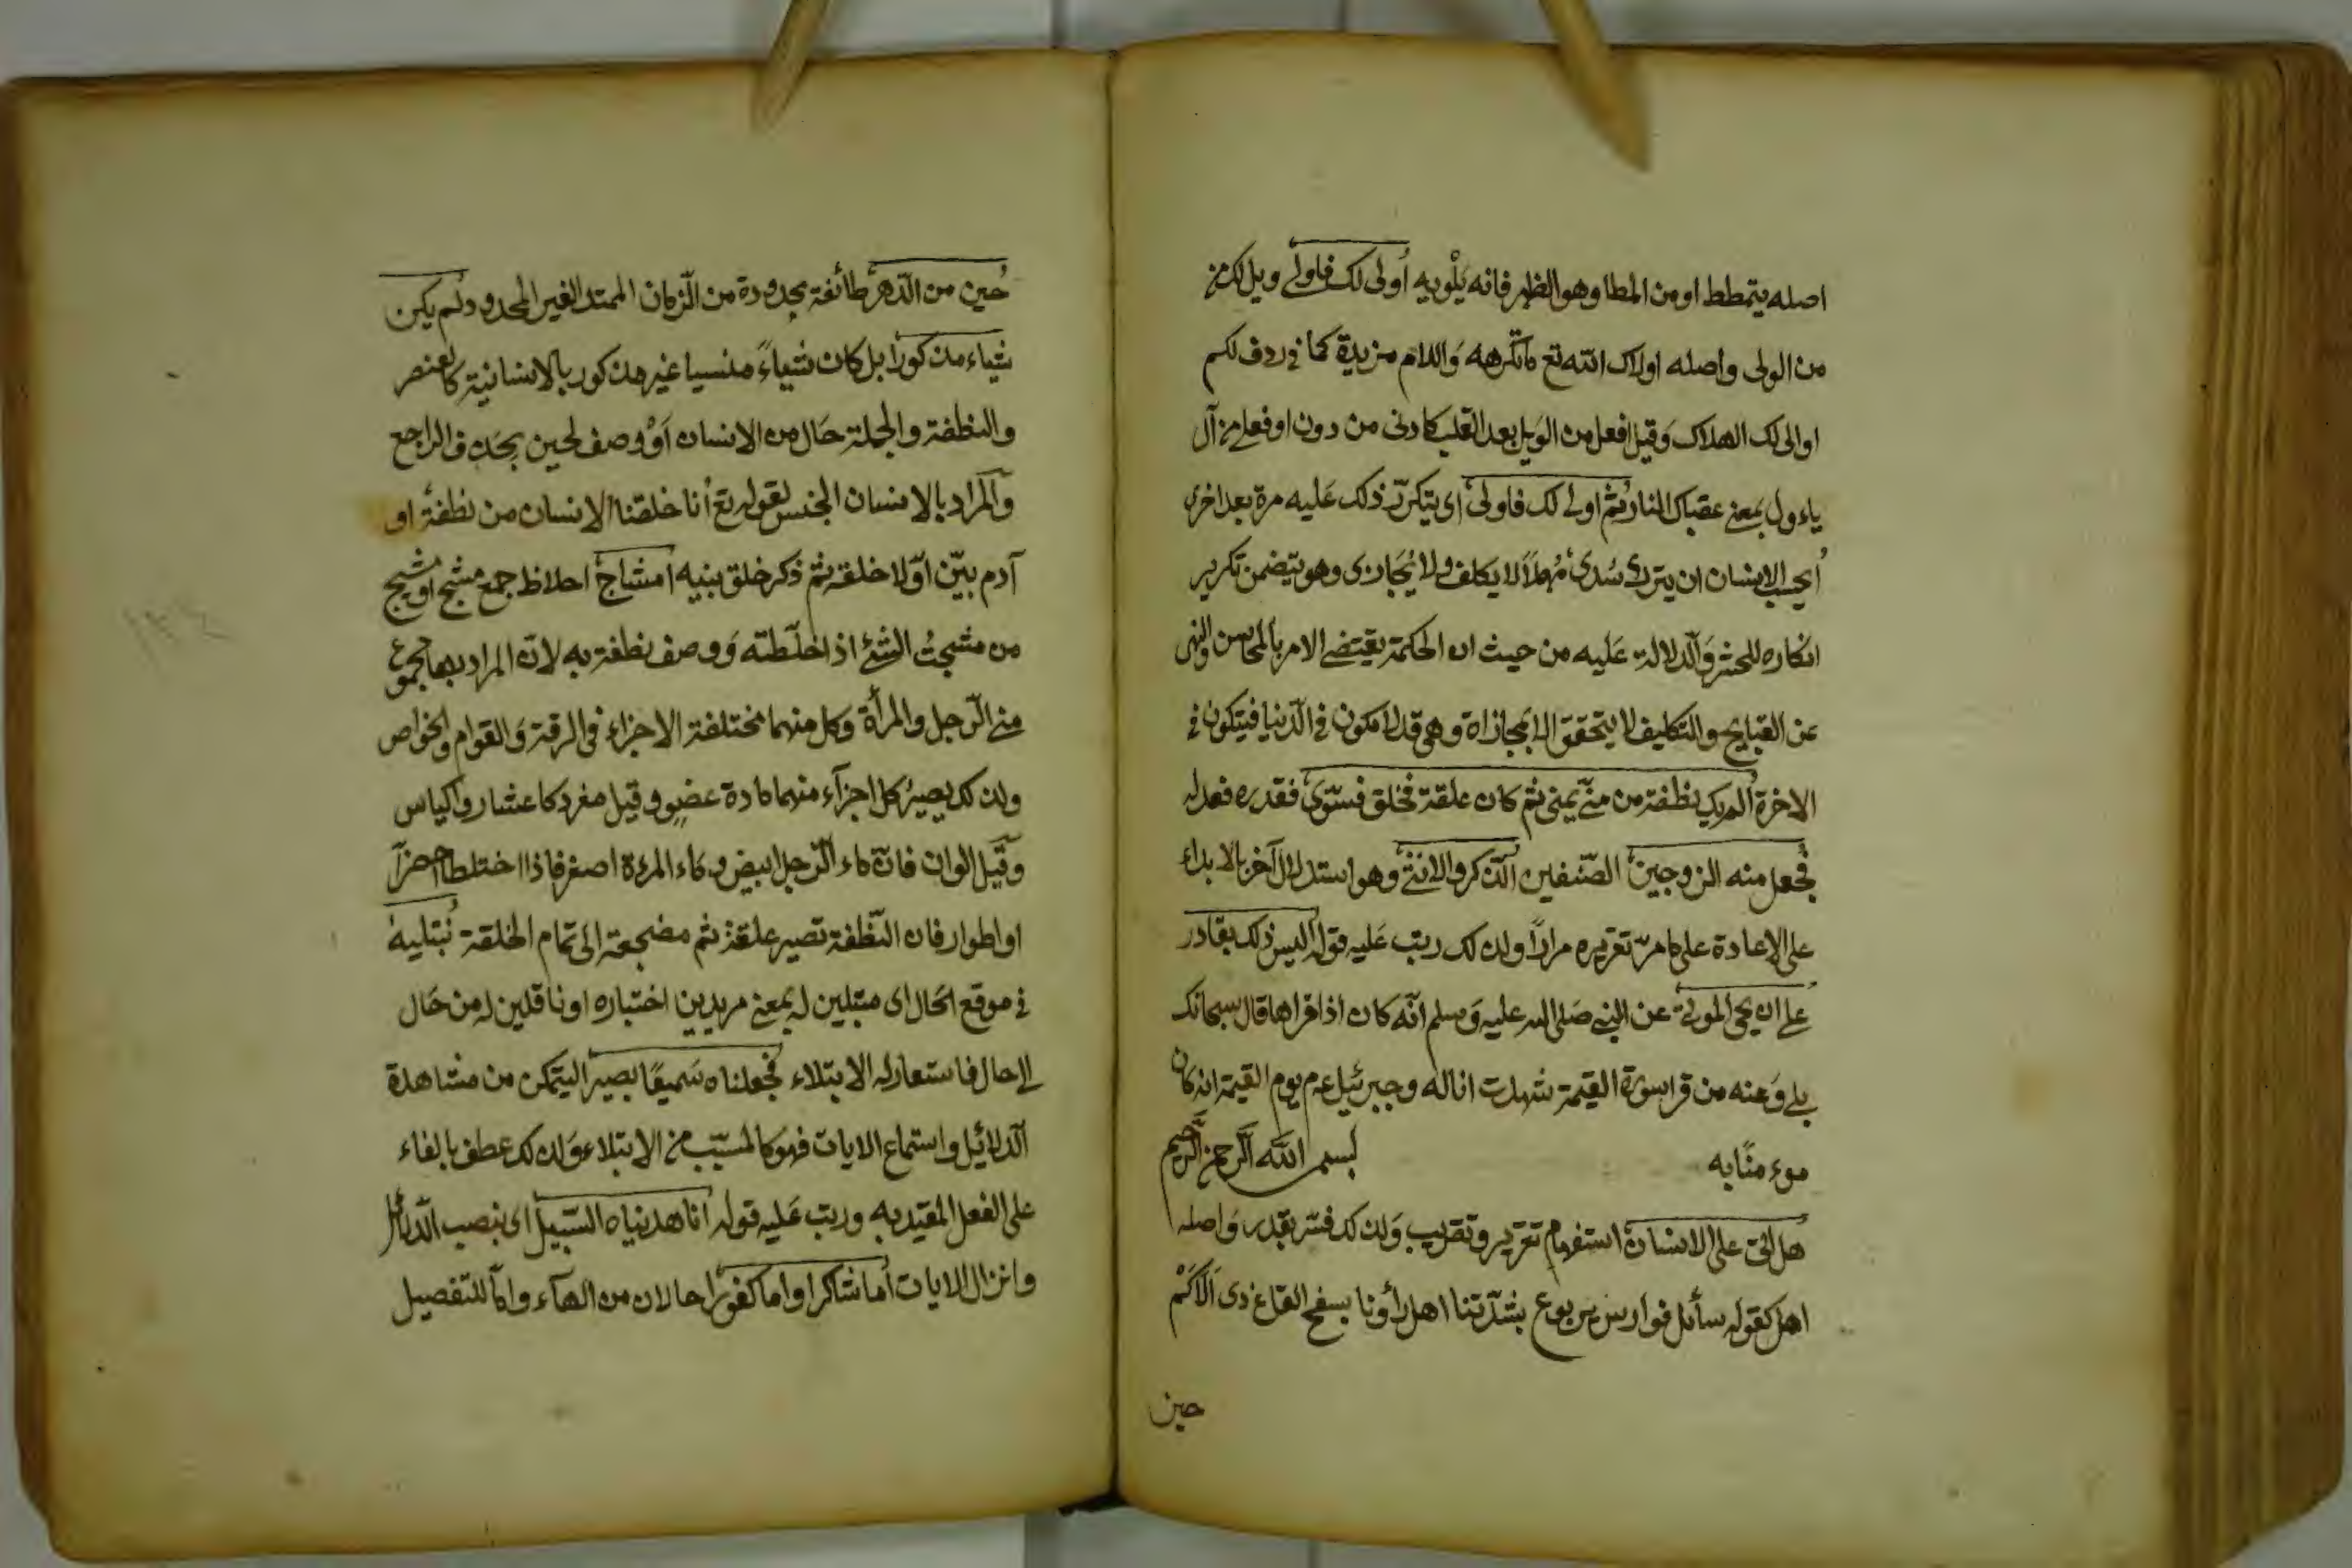 اصله يتمطط او من المطا وهو الظهر فانه يَلْويه أولى لك فاولى ويل لك من
من الولى واصله اولاك الله تع ما تكرهه واللام مزيدة كما فى ردف لكم
او الى لك الهلاك وقيل افعل من الويل بعد القلب كادنى من دون او فعلى من آل
ياءول بمعنى عقباك النار ثم اولى لك فاولى اى يتكرّر ذلك عليه مرة بعد اخرى
أيحسب الانسان ان يترك سُدى مُهملاً لا يكلف ولا يُجَازى وهو يتضمن تكرير
انكاره للحشر والدلالة عَليه من حيث ان الحكمة يقتضى الامر بالمحاسن والنهى
عن القبايح والتكليف لا يتحقق الا بمجازاة وهى قد لا مكون فى الدّنيا فيتكون فى
الاخرة ألم يك نطفة من منىّ يمنى ثم كان علقة فخلق فسوّى فقدره فعدله
فجعل منه الزوجين الصّنفين الذّكر والانثى وهو استدلال آخر بالابداء
على الاعادة على ما مرّ تقريره مراراً ولذلك رتب عَليه قوله أليس ذلك بقادر
على ان يحى الموتى عن النبى صَلى الله عليه وَسلم انّه كان اذا قراها قال سبحانك
بلى وَعنه من قرا سورة القيمة شهدت انا له وجبرئيل عم يوم القيمة انه كان
موءمنًا به بسم الله الرّحمن الرّحيم
هل اتى على الانسان استفهام تقرير وتقريب وَلذلك فسّر بقدر وَاصله
اهل كقوله سأئل فوارس يربوع بشدّتنا اهل رأونا بسفح القاع ذى الاكَمْ
حين
حين من الدّهر طائفة محدودة من الزّمان الممتد الغير المحدود ولم يكن
شيئاء مذكوراً بل كان شيئاءً منسيا غير مذكور بالانسانية كالعنصر
والنطفة والجملة حَال من الانسان اَوْ وصف لحين بحَذف الراجع
وآلمراد بالانسان الجنس لقوله تع أنا خلقنا الانسان من نطفة او
آدم بيّن اوّلا خلقه ثم ذكر خلق بنيه امشاج احلاظ جمع مشج او مشيج
من مشجتُ الشئ اذا خلَطته وَوصف نطفة به لانّ المراد بها مجموع
منى الرّجل والمرأة وكل منهما مختلفة الاجزاء فى الرقة وَالقوام والخواص
ولذلك يصيرُ كل اجزآء منهما مادة عضو وقيل مفرد كاعشار واكياس
وقيل الوان فانّ ماء الرّجل ابيض وماء المرءة اصفر فاذا اختلطا اخضرآ
او اطوار فان النّطفة تصير علقة ثم مضجعة الى تمام الخلقة نبتليه
فى موقع الحَال اى مبتلين له بمعنى مريدين اختباره او ناقلين له من حَال
الى حال فاستعار له الابتلاء فجعلناه سَميعًا بصيرا ليتمكن من مشاهدة
الدّلائل واستماع الايات فهو كالمسبّب من الابتلاء وَلذلك عطف بالفاء
على الفعل المقيد به ورتب عَليه قوله أنا هديناه السّبيل اى بنصب الدّلائل
وانزال الايات أما شاكرا واما كفورا حالان من الهآء وامآ للتفصيل